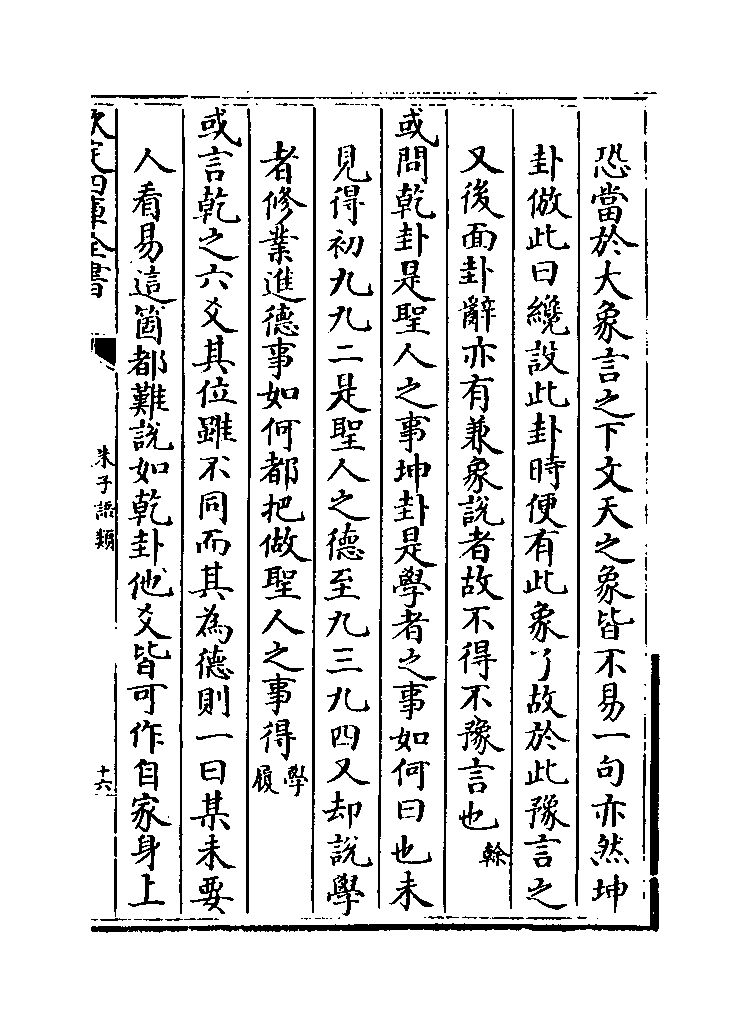 恐當於大象言之下文天之象皆不易一句亦然坤
卦倣此曰纔設此卦時便有此象了故於此豫言之
又後面卦辭亦有兼象說者故不得不豫言也 榦
或問乾卦是聖人之事坤卦是學者之事如何曰也未
見得初九九二是聖人之德至九三九四又却說學
者修業進德事如何都把做聖人之事得 學履
或言乾之六爻其位雖不同而其為德則一曰某未要
人看易這箇都難說如乾卦他爻皆可作自家身上
欽定四庫全書
朱子語類
十六